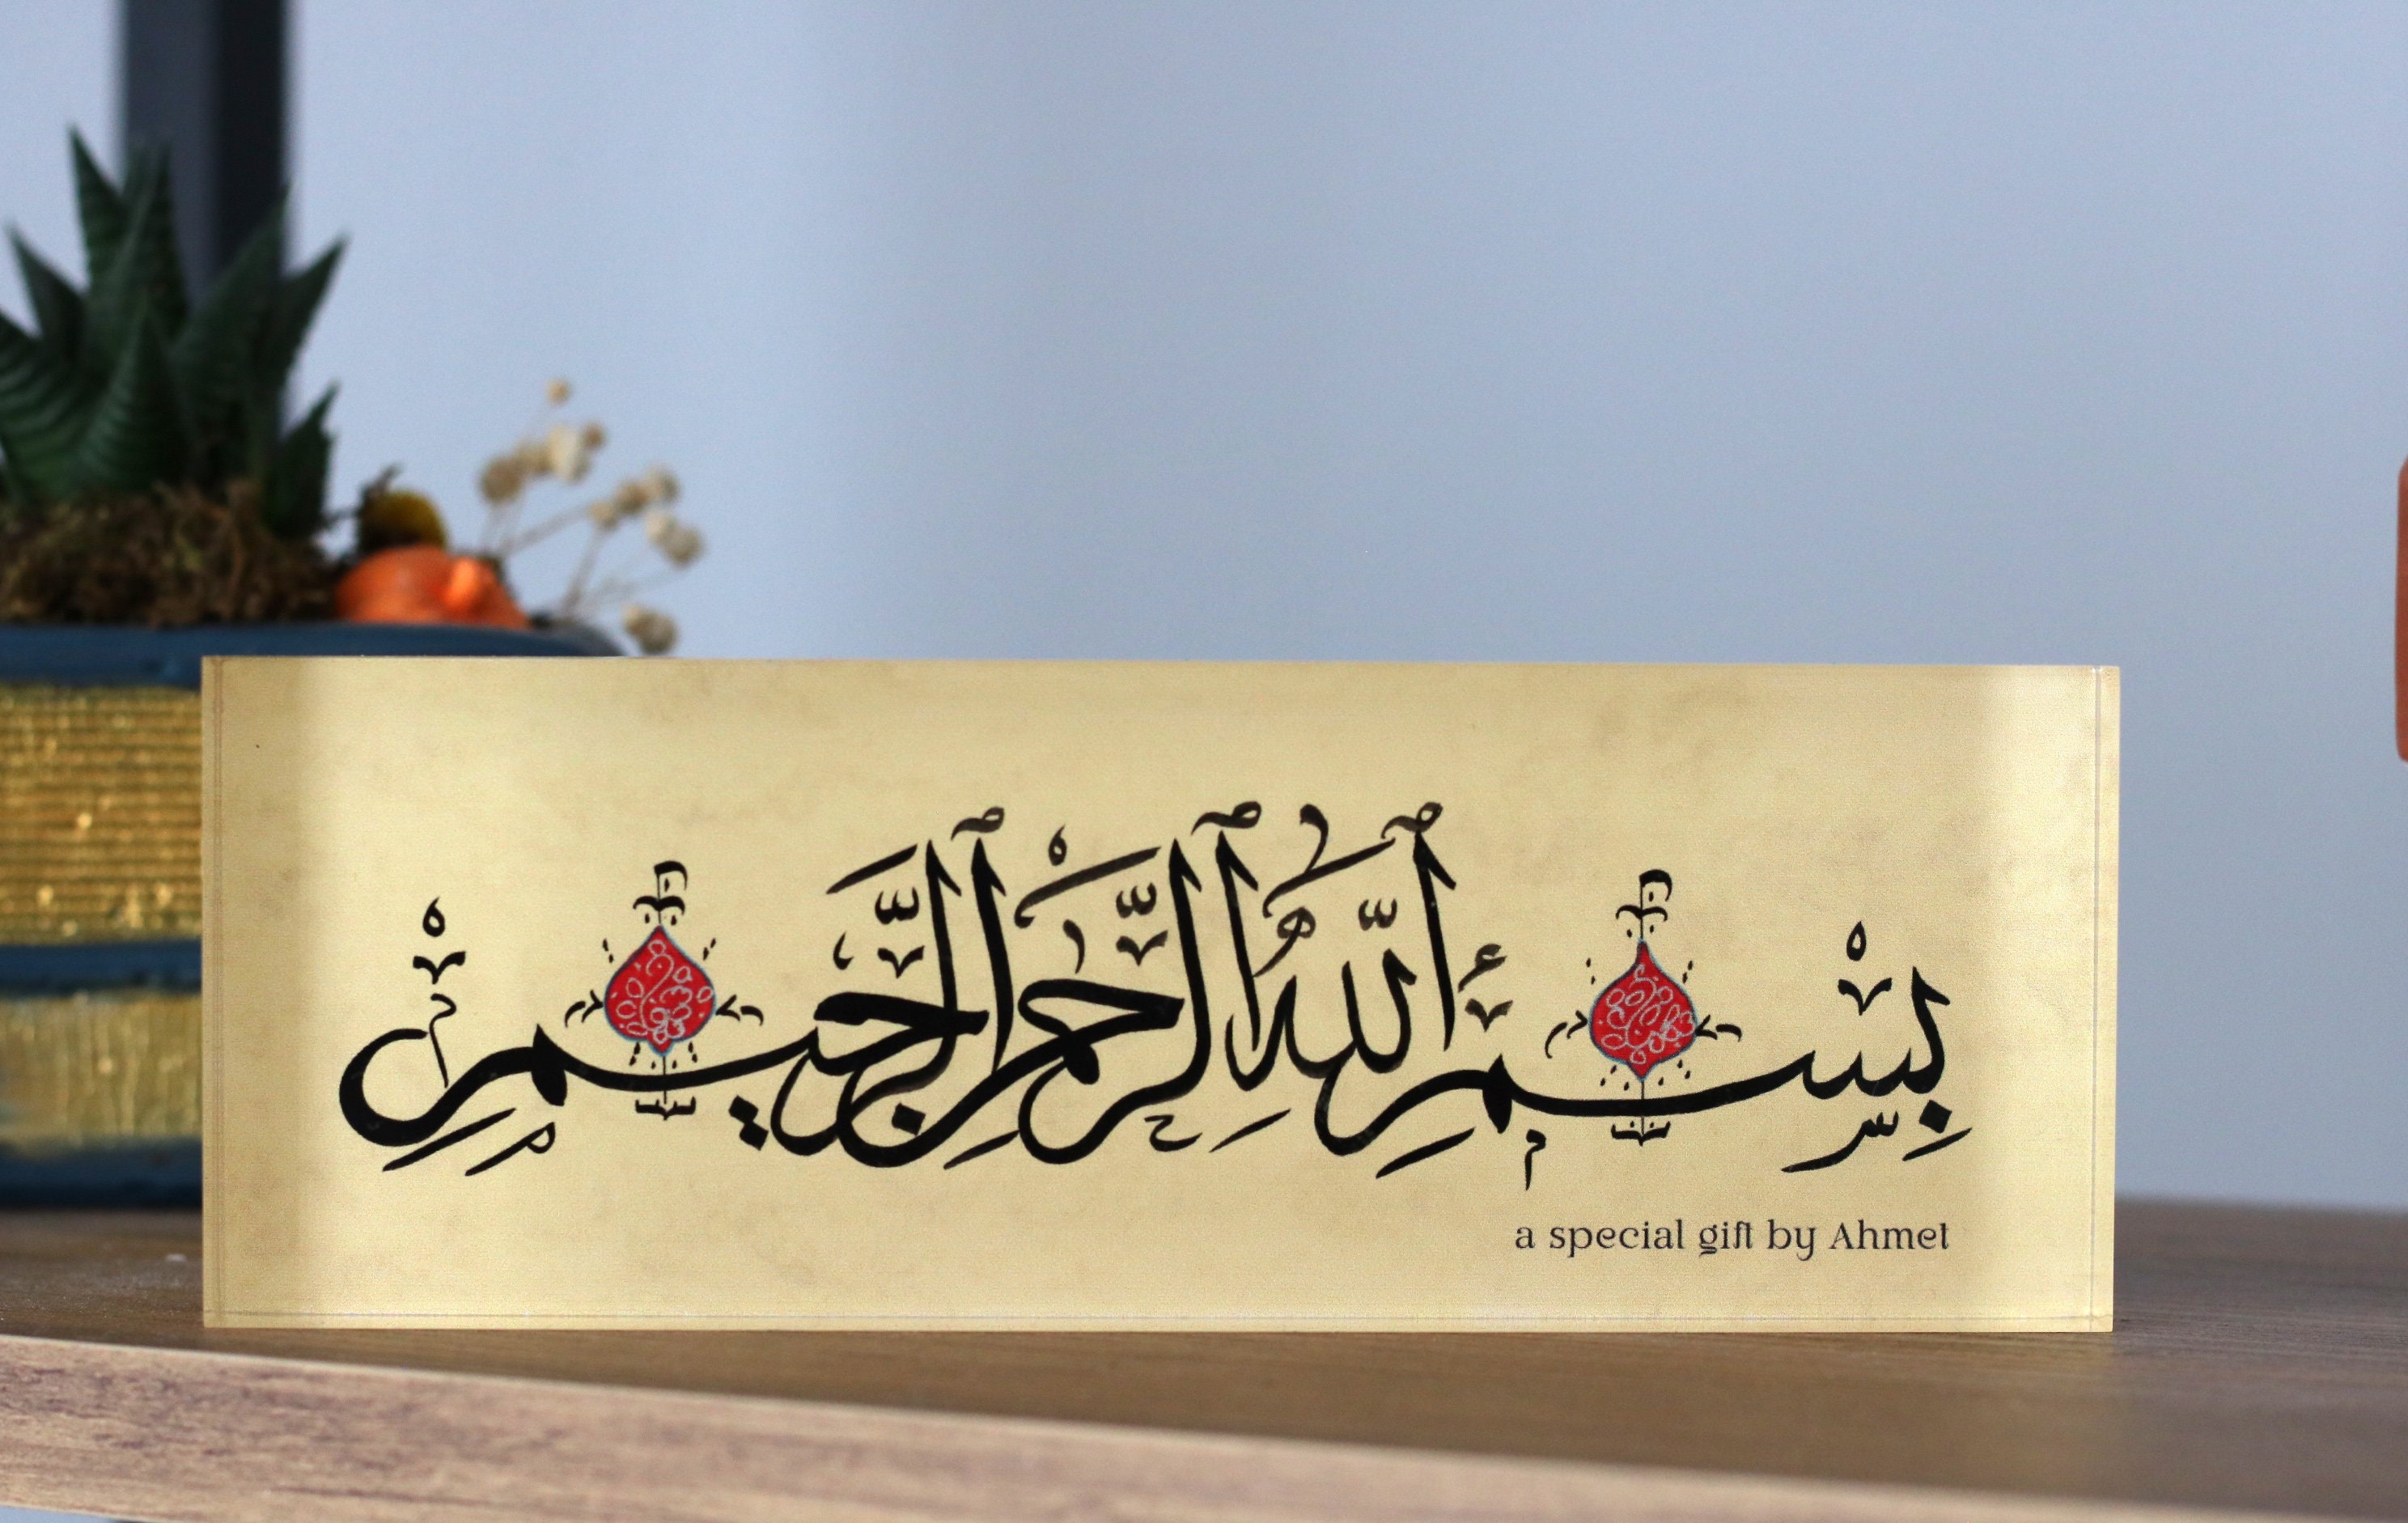 بِسْمِ ٱللَّهِ ٱلرَّحْمَٰنِ ٱلرَّحِيمِ
a special gift by Ahmet